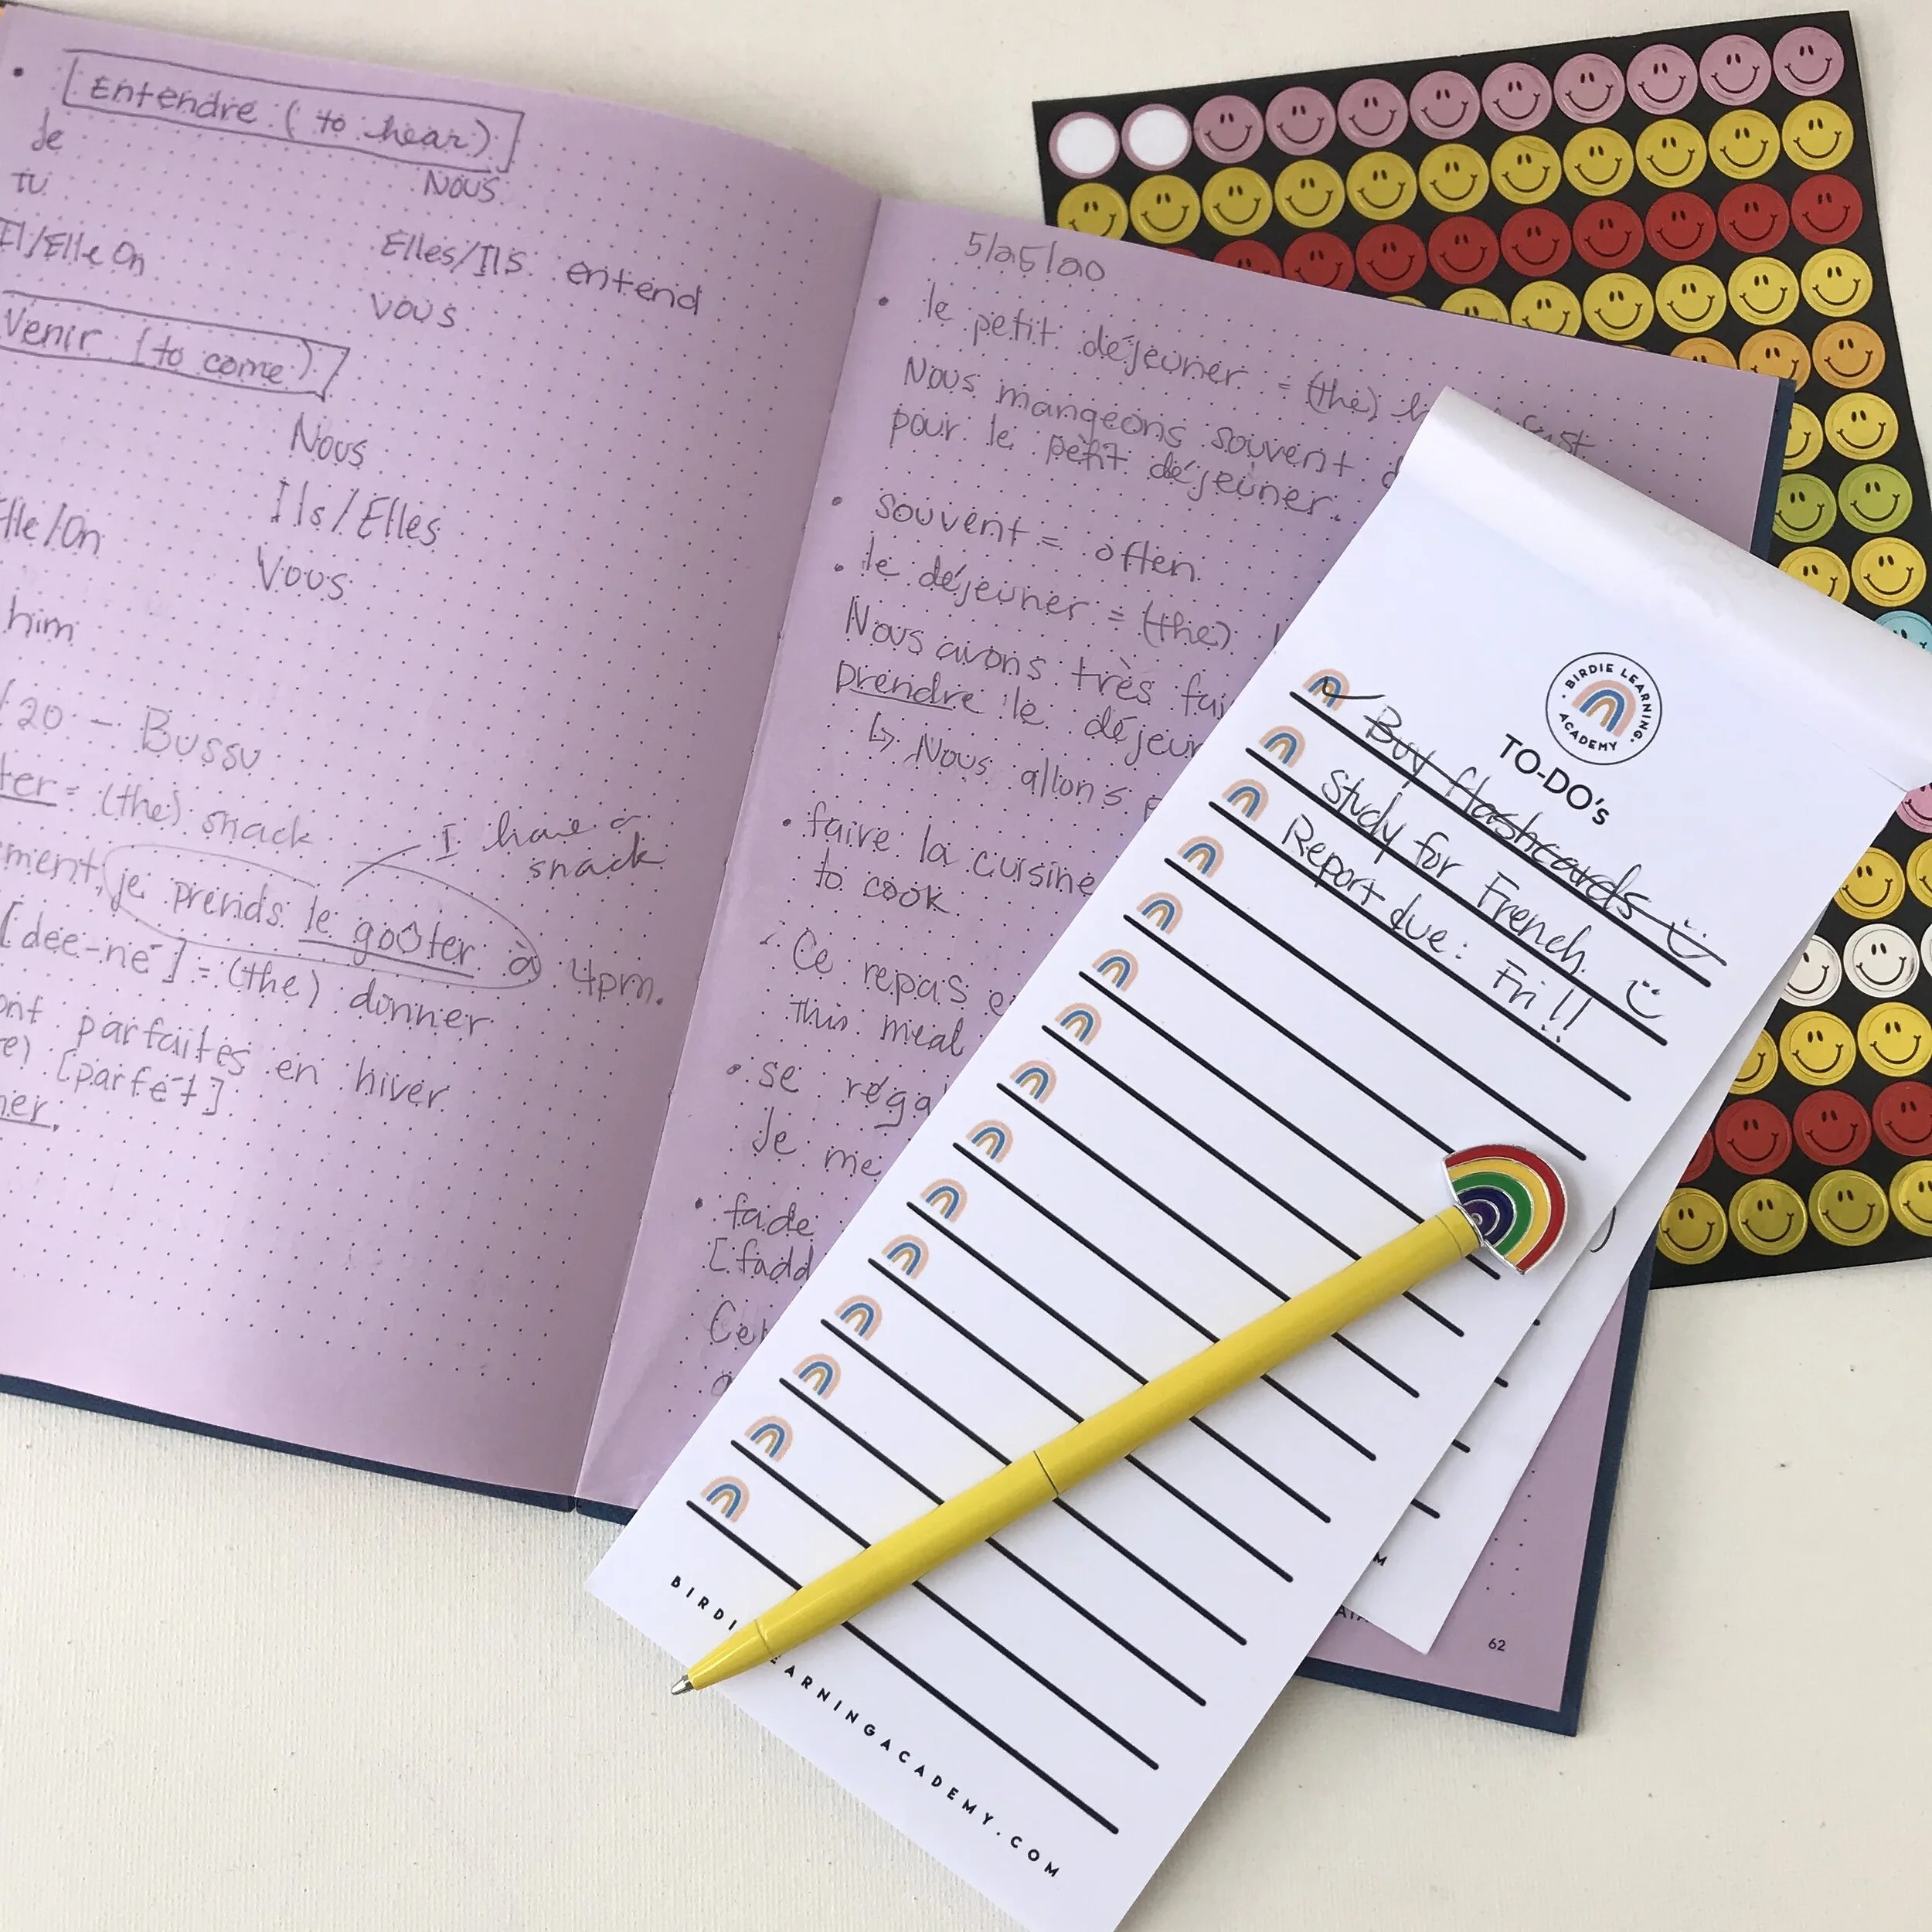 Entendre (to hear)
Je
tu
Nous
Il/Elle On
Elles/Ils entend
vous
Venir (to come)
Nous
Ils/Elles
Elle/On
Vous
him
20 - Bussu
ter = (the) snack
I have a
snack
ment, je prends le goûter à 4pm.
[dee-né] = (the) dinner
ont parfaites en hiver
re) [parfèt]
ner.
5/25/20
le petit déjeuner = (the)
Nous mangeons souvent
pour le petit déjeuner.
souvent = often
le déjeuner = (the)
Nous avons très fai
prendre le déjeun
↳ Nous allons p
faire la cuisine
to cook
Ce repas e
This meal
se réga
Je me
fade
[fadd
Cet
62
BIRDIE LEARNING ACADEMY
TO-DO's
✓ Buy flashcards :)
Study for French. :)
Report due: Fri!!
BIRDI EARNINGACADEMY.COM